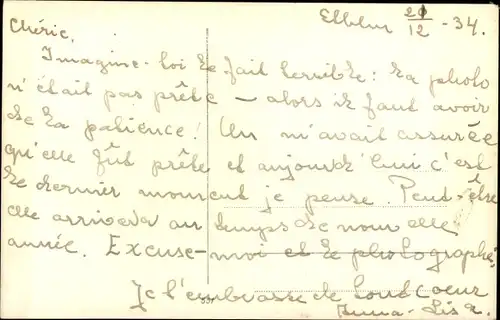 21/12 - 34.
Chéric,
Imagine-toi le fait terrible: la photo
n'était pas prête — alors il faut avoir
de la patience! On m'avait assurée
qu'elle fût prête et aujourd'hui c'est
le dernier moment je pense. Peut-être
elle arrivera au temps de nouvelle
année. Excuse-moi et le photographe,
Je t'embrasse de tout coeur
-Lisa.